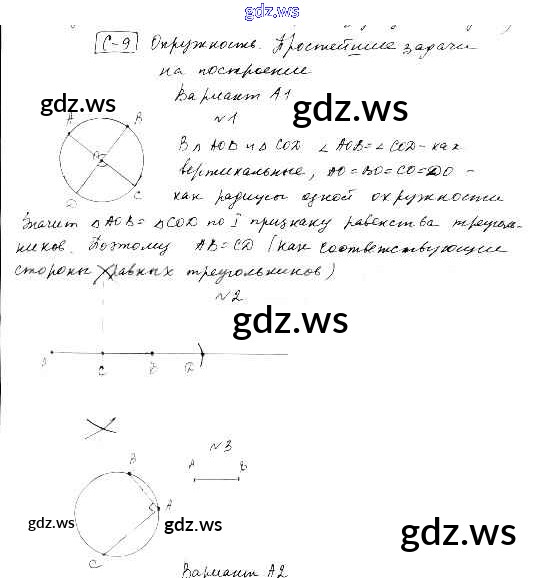 gdz.ws
С-9 Окружность. Простейшие задачи
на построение
Вариант А1
gdz.ws
gdz.ws
№1
А В
О
D С
В △ АОВ и △ COD ∠ АОВ = ∠ COD - как
вертикальные, АО = ВО = СО = DO -
как радиусы одной окружности
gdz.ws
gdz.ws
Значит △ АОВ = △ COD по I признаку равенства треуголь-
ников. Поэтому АВ = CD (как соответствующие
стороны равных треугольников)
№2
gdz.ws
С
№3
А В
gdz.ws
В
А
С
gdz.ws
gdz.ws
gdz.ws
Вариант А2